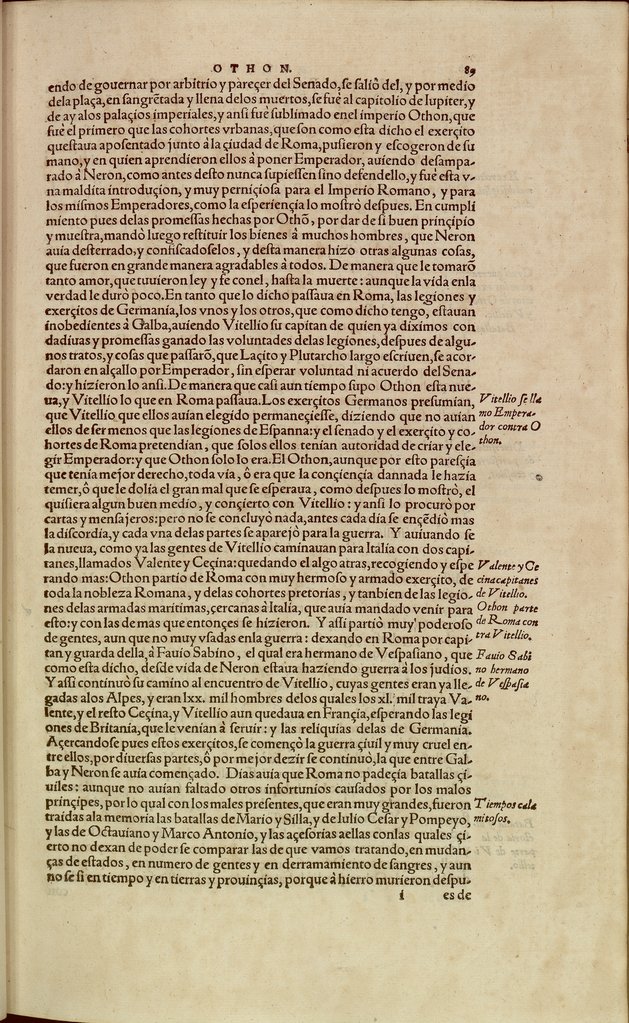 OTHON. 89
endo de gouernar por arbitrio y pareçer del Senado, se saliò del, y por medio
dela plaça, en sangrẽtada y llena delos muertos, se fuè al capitolio de Iupiter, y
de ay alos palaçios imperiales, y ansi fuè sublimado enel imperio Othon, que
fuè el primero que las cohortes vrbanas, que son como esta dicho el exerçito
questaua aposentado junto à la çiudad de Roma, pusieron y escogeron de su
mano, y en quien aprendieron ellos à poner Emperador, auiendo desampa-
rado à Neron, como antes desto nunca supiessen sino defendello, y fuè esta v-
na maldita introduçion, y muy perniçiosa para el Imperio Romano, y para
los mismos Emperadores, como la esperiençia lo mostrò despues. En cumpli
miento pues delas promessas hechas por Othõ, por dar de si buen prinçipio
y muestra, mandò luego restituir los bienes à muchos hombres, que Neron
auia desterrado, y confiscadoselos, y desta manera hizo otras algunas cosas,
que fueron en grande manera agradables à todos. De manera que le tomarõ
tanto amor, que tuuieron ley y fe conel, hasta la muerte: aunque la vida enla
verdad le durò poco. En tanto que lo dicho passaua en Roma, las legiones y
exerçitos de Germania, los vnos y los otros, que como dicho tengo, estauan
inobedientes à Galba, auiendo Vitellio su capitan de quien ya diximos con
dadiuas y promessas ganado las voluntades delas legiones, despues de algu-
nos tratos, y cosas que passarõ, que Laçito y Plutarcho largo escriuen, se acor-
daron en alçallo por Emperador, sin esperar voluntad ni acuerdo del Sena-
do: y hizieron lo ansi. De manera que casi aun tiempo supo Othon esta nue-
ua, y Vitellio lo que en Roma passaua. Los exerçitos Germanos presumian,
que Vitellio, que ellos auian elegido permaneçiesse, diziendo que no auian
ellos de ser menos que las legiones de Espanna: y el senado y el exerçito y co-
hortes de Roma pretendian, que solos ellos tenian autoridad de criar y ele-
gir Emperador: y que Othon solo lo era. El Othon, aunque por esto paresçia
que tenia mejor derecho, toda via, ò era que la conçiençia dannada le hazia
temer, ò que le dolia el gran mal que se esperaua, como despues lo mostrò, el
quisiera algun buen medio, y conçierto con Vitellio: y ansi lo procurò por
cartas y mensajeros: pero no se concluyò nada, antes cada dia se ençẽdiò mas
la discordia, y cada vna delas partes se aparejò para la guerra. Y auiuando se
la nueua, como ya las gentes de Vitellio caminauan para Italia con dos capi-
tanes, llamados Valente y Ceçina: quedando el algo atras, recogiendo y espe
rando mas: Othon partio de Roma con muy hermoso y armado exerçito, de
toda la nobleza Romana, y delas cohortes pretorias, y tanbien de las legio-
nes delas armadas maritimas, çercanas à Italia, que auia mandado venir para
esto: y con las de mas que entonçes se hizieron. Y assi partiò muy poderoso
de gentes, aun que no muy vsadas enla guerra: dexando en Roma por capi-
tan y guarda della, à Fauio Sabino, el qual era hermano de Vespasiano, que
como esta dicho, desde vida de Neron estaua haziendo guerra à los judios.
Y assi continuò su camino al encuentro de Vitellio, cuyas gentes eran ya lle-
gadas alos Alpes, y eran lxx. mil hombres delos quales los xl. mil traya Va-
lente, y el resto Ceçina, y Vitellio aun quedaua en Françia, esperando las legi
ones de Britania, que le venian à seruir: y las reliquias delas de Germania.
Açercandose pues estos exerçitos, se començò la guerra çiuil y muy cruel en-
tre ellos, por diuersas partes, ò por mejor dezir se continuò, la que entre Gal-
ba y Neron se auia començado. Dias auia que Roma no padeçia batallas çi-
uiles: aunque no auian faltado otros infortunios causados por los malos
prinçipes, por lo qual con los males presentes, que eran muy grandes, fueron
traidas ala memoria las batallas de Mario y Silla, y de Iulio Cesar y Pompeyo,
y las de Octauiano y Marco Antonio, y las açesorias aellas conlas quales çi-
erto no dexan de poder se comparar las de que vamos tratando, en mudan-
ças de estados, en numero de gentes y en derramamiento de sangres, y aun
no se si en tiempo y en tierras y prouinçias, porque à hierro murieron despu-
i es de
Vitellio se lla
mo Empera-
dor contra O
thon.
Valente y Ce
cina capitanes
de Vitellio.
Othon parte
de Roma con
tra Vitellio.
Fauio Sabi
no hermano
de Vespasia
no.
Tiempos cala
mitosos.